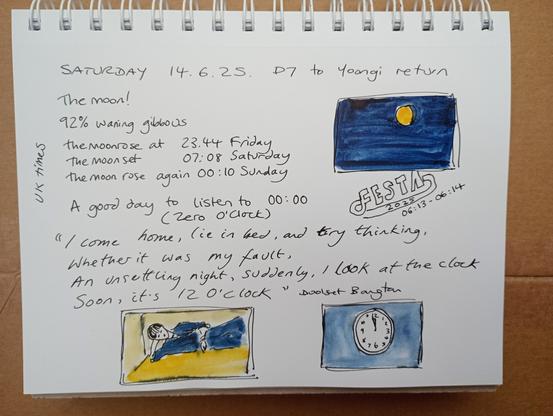 SATURDAY 14.6.25. D7 to Yoongi return
The moon!
92% waning gibbous
the moonrose at 23.44 Friday
the moonset 07:08 Saturday
the moon rose again 00:10 Sunday
UK times
FESTA
2025
06:13-06:14
A good day to listen to 00:00
(Zero O'Clock)
"I come home, lie in bed, and try thinking,
Whether it was my fault,
An unsettling night, suddenly, I look at the clock
Soon, it's 12 O'clock" Doolset Bangtan
12